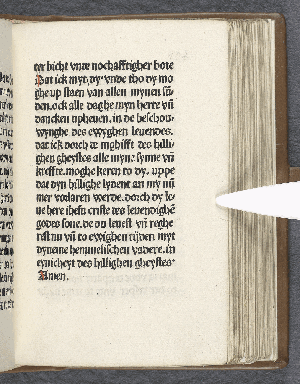 ter bicht vnde nochafftigher bote
Dat ick myt dy vnde tho dy mo
ghe vp staen van allen mynen sũ
den. ock alle daghe myn herte vñ
dancken vpheuen. in de beschou⸗
wynghe des ewyghen leuendes.
dat ick dorch de mghifft des hilli⸗
ghen gheystes alle myne synne vñ
kreffte. moghe keren to dy. vppe
dat dyn hillighe lydent an my nũ
mer vorlaren werde. dorch dy le⸗
ue here ihesu criste des leuendighẽ
godes sone. de du leuest vñ reghe
rest nu vñ to ewighen tijden myt
dyneme hemmelischen vadere. in
eynicheyt des hillighen gheystes⸗
Amen.